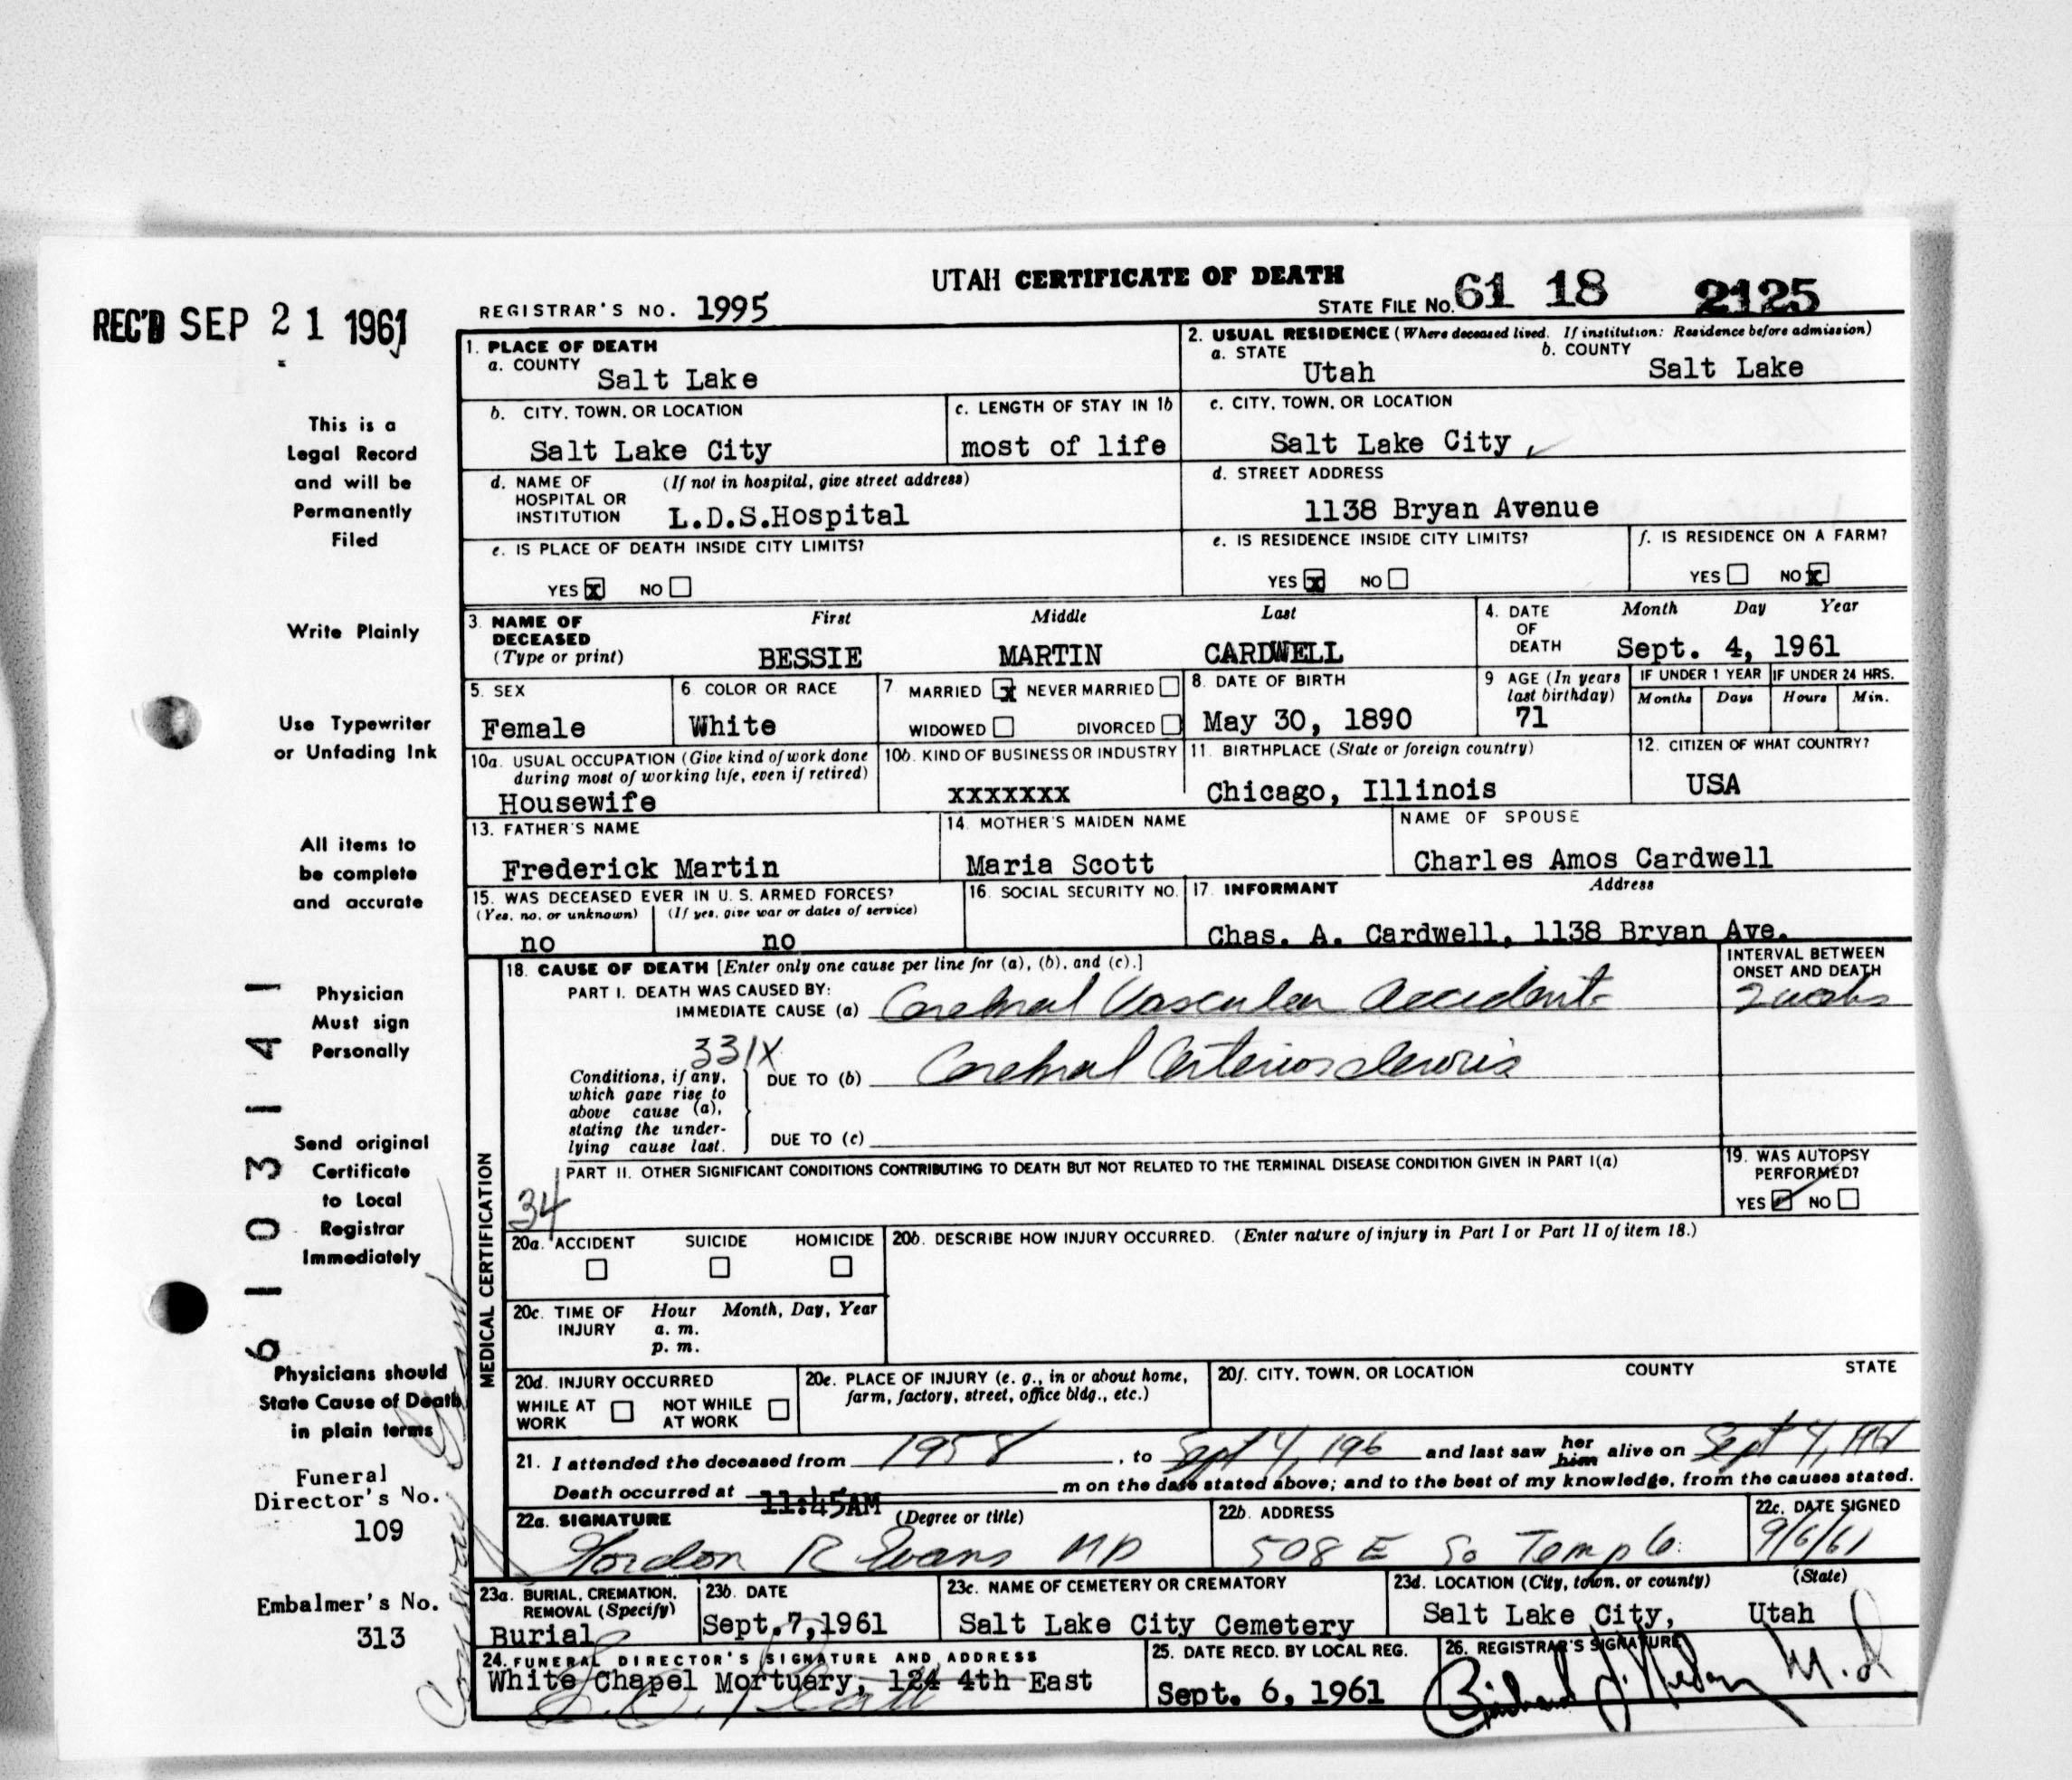 UTAH CERTIFICATE OF DEATH
REC'D SEP 21 1961
REGISTRAR'S NO. 1995
STATE FILE NO. 61 18 2125
This is a
Legal Record
and will be
Permanently
Filed
Write Plainly
Use Typewriter
or Unfading Ink
All items to
be complete
and accurate
Physician
Must sign
Personally
Send original
Certificate
to Local
Registrar
Immediately
Physicians should
State Cause of Death
in plain terms
Funeral
Director's No.
109
Embalmer's No.
313
61031411
1. PLACE OF DEATH
a. COUNTY
Salt Lake
2. USUAL RESIDENCE (Where deceased lived. If institution: Residence before admission)
a. STATE
b. COUNTY
Utah
Salt Lake
b. CITY, TOWN, OR LOCATION
Salt Lake City
c. LENGTH OF STAY IN 1b
most of life
c. CITY, TOWN, OR LOCATION
Salt Lake City
d. NAME OF HOSPITAL OR INSTITUTION
(If not in hospital, give street address)
L.D.S.Hospital
d. STREET ADDRESS
1138 Bryan Avenue
e. IS PLACE OF DEATH INSIDE CITY LIMITS?
YES x NO
e. IS RESIDENCE INSIDE CITY LIMITS?
YES x NO
f. IS RESIDENCE ON A FARM?
YES NO x
3. NAME OF DECEASED
(Type or print)
First Middle Last
BESSIE MARTIN CARDWELL
4. DATE OF DEATH
Month Day Year
Sept. 4, 1961
5. SEX
Female
6. COLOR OR RACE
White
7. MARRIED x NEVER MARRIED
WIDOWED DIVORCED
8. DATE OF BIRTH
May 30, 1890
9 AGE (In years last birthday)
71
IF UNDER 1 YEAR
Months Days
IF UNDER 24 HRS.
Hours Min.
10a. USUAL OCCUPATION (Give kind of work done
during most of working life, even if retired)
Housewife
10b. KIND OF BUSINESS OR INDUSTRY
xxxxxxx
11. BIRTHPLACE (State or foreign country)
Chicago, Illinois
12. CITIZEN OF WHAT COUNTRY?
USA
13. FATHER'S NAME
Frederick Martin
14. MOTHER'S MAIDEN NAME
Maria Scott
NAME OF SPOUSE
Charles Amos Cardwell
15. WAS DECEASED EVER IN U. S. ARMED FORCES?
(Yes, no, or unknown) (If yes, give war or dates of service)
no no
16. SOCIAL SECURITY NO.
17. INFORMANT Address
Chas. A. Cardwell, 1138 Bryan Ave.
MEDICAL CERTIFICATION
18. CAUSE OF DEATH [Enter only one cause per line for (a), (b), and (c).]
PART I. DEATH WAS CAUSED BY:
IMMEDIATE CAUSE (a) Cerebral Vascular Accident
INTERVAL BETWEEN
ONSET AND DEATH
2 weeks
331X
Conditions, if any,
which gave rise to
above cause (a),
stating the under-
lying cause last.
DUE TO (b) Cerebral Arteriosclerosis
DUE TO (c)
PART II. OTHER SIGNIFICANT CONDITIONS CONTRIBUTING TO DEATH BUT NOT RELATED TO THE TERMINAL DISEASE CONDITION GIVEN IN PART I(a)
34
19. WAS AUTOPSY
PERFORMED?
YES ✓ NO
20a. ACCIDENT SUICIDE HOMICIDE
20b. DESCRIBE HOW INJURY OCCURRED. (Enter nature of injury in Part I or Part II of item 18.)
20c. TIME OF INJURY
Hour Month, Day, Year
a. m.
p. m.
20d. INJURY OCCURRED
WHILE AT WORK NOT WHILE AT WORK
20e. PLACE OF INJURY (e. g., in or about home,
farm, factory, street, office bldg., etc.)
20f. CITY, TOWN, OR LOCATION COUNTY STATE
21. I attended the deceased from 1958, to Sept 4, 196 and last saw her him alive on Sept 4, 1961
Death occurred at 11:45AM m on the date stated above; and to the best of my knowledge, from the causes stated.
22a. SIGNATURE (Degree or title)
Gordon R Evans MD
22b. ADDRESS
508 E So Temple
22c. DATE SIGNED
9/6/61
23a. BURIAL, CREMATION,
REMOVAL (Specify)
Burial
23b. DATE
Sept.7,1961
23c. NAME OF CEMETERY OR CREMATORY
Salt Lake City Cemetery
23d. LOCATION (City, town, or county) (State)
Salt Lake City, Utah
24. FUNERAL DIRECTOR'S SIGNATURE AND ADDRESS
White Chapel Mortuary, 124 4th East
25. DATE RECD. BY LOCAL REG.
Sept. 6, 1961
26. REGISTRAR'S SIGNATURE
M.d